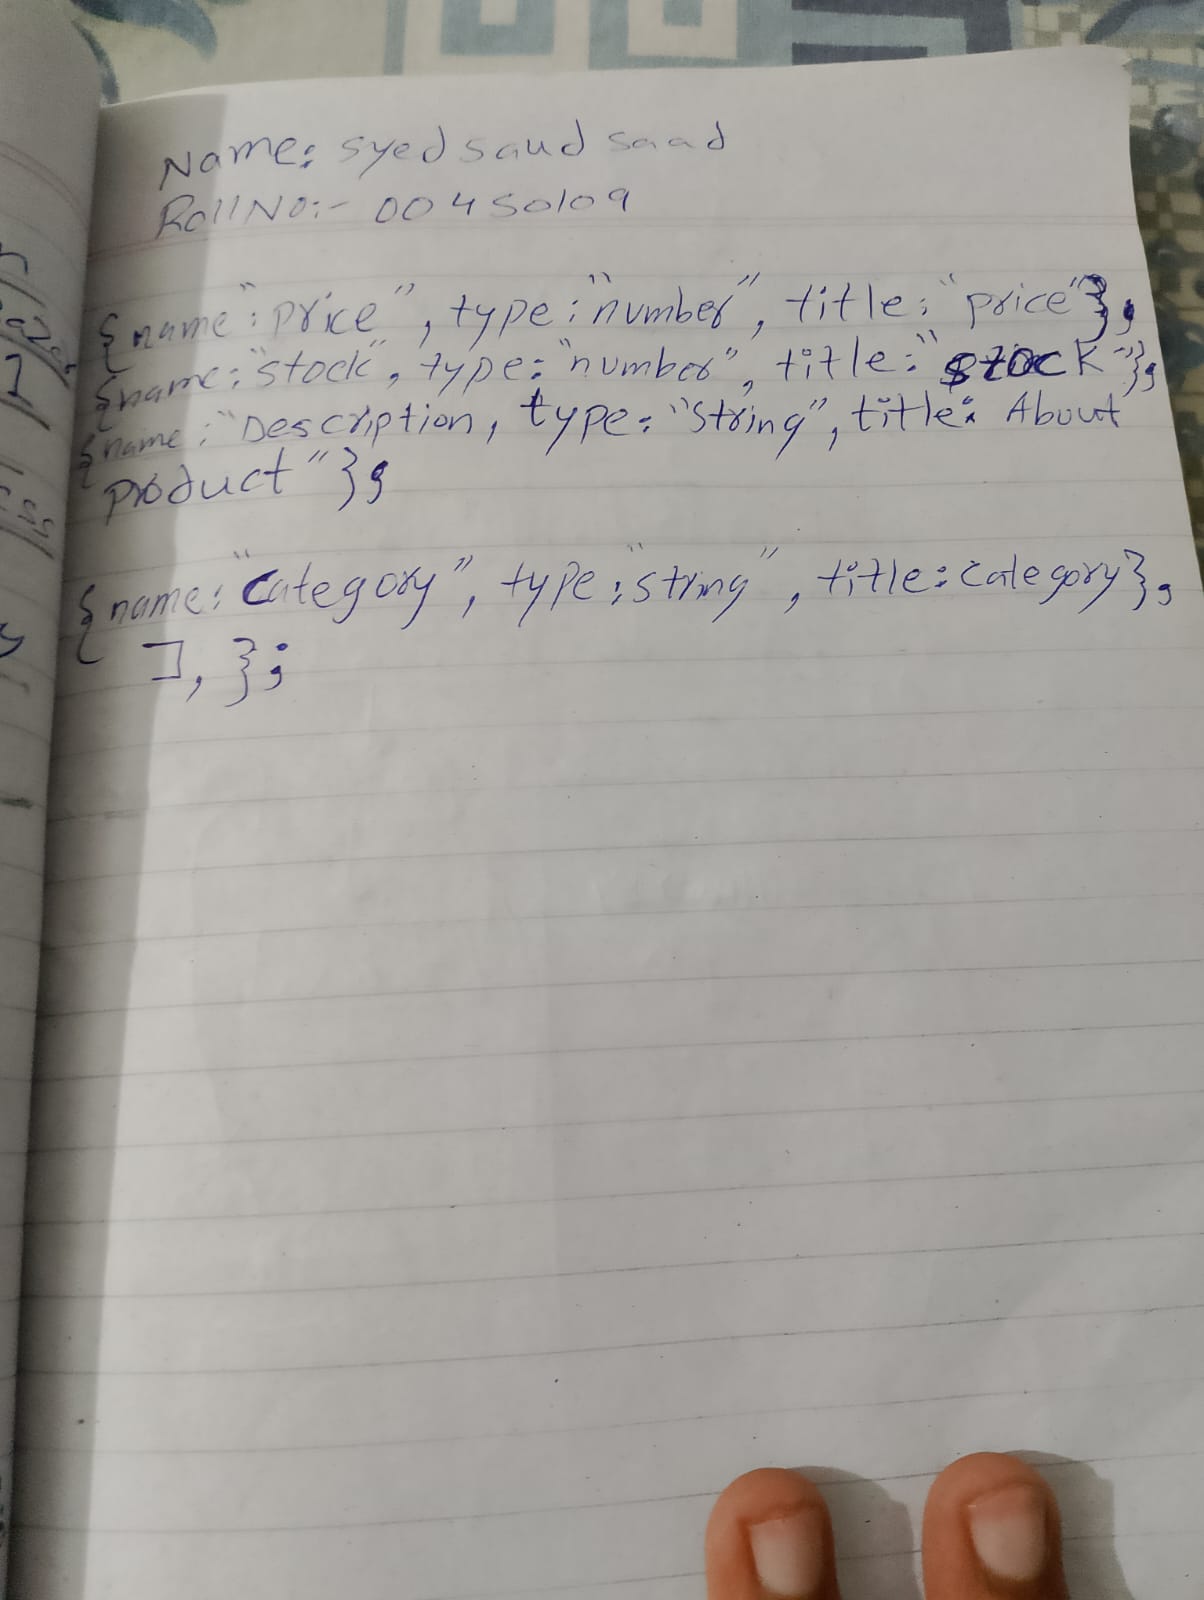 Name: Syed Saud Saad
Roll No:- 00450109
{name: "price", type: "number", title: "price"};
{name: "stock", type: "number", title: "stock"};
{name: "Description, type: "String", title: About
product"};
{name: "category", type: "string", title: category};
], };